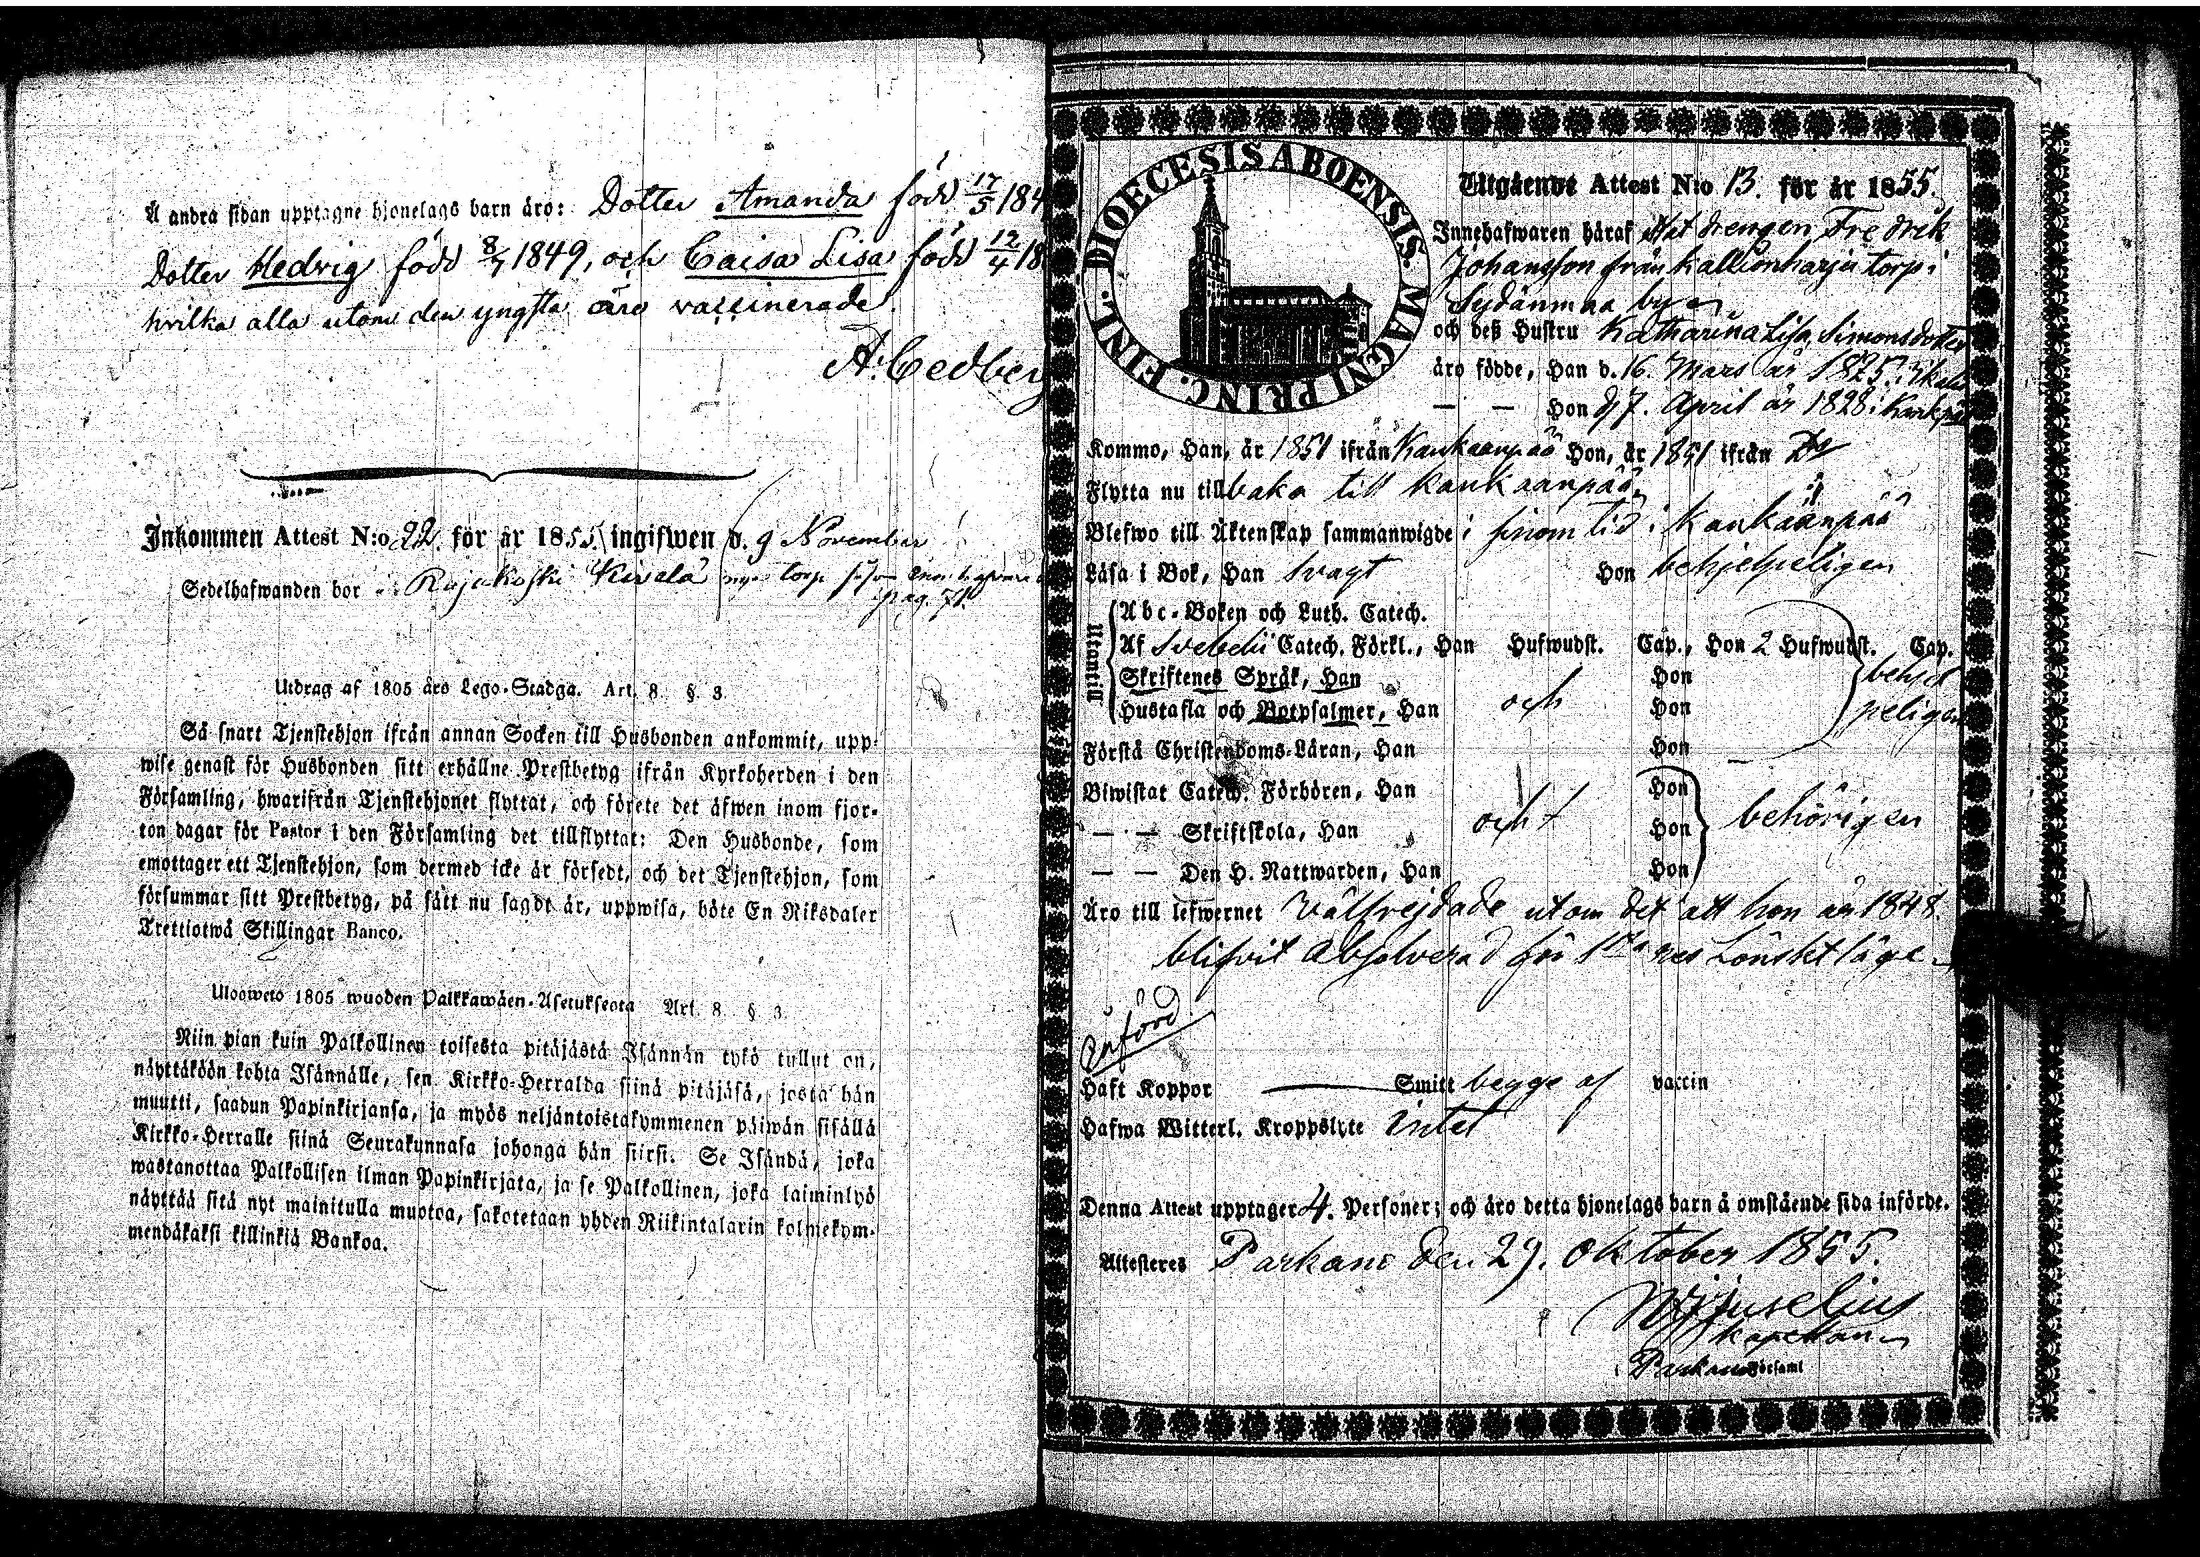 Å andra sidan upptagne hjonelags barn äro: Dotter Amanda född 17/5 184
Dotter Hedvig född 8/7 1849, och Caisa Lisa född 12/4 18
hvilka alla utom den yngsta äro vaccinerade.
A. Cedberg
Inkommen Attest N:o 22. för år 1855. ingifwen d. 9 November
Sedelhafwanden bor Rajakoski Kivelä torp
pag. 71.
Utdrag af 1805 års Lego-Stadga. Art. 8. § 3.
Så snart Tjenstehjon ifrån annan Socken till Husbonden ankommit, upp-
wise genast för Husbonden sitt erhållne Prestbetyg ifrån Kyrkoherden i den
Församling, hwarifrån Tjenstehjonet flyttat, och förete det äfwen inom fjor-
ton dagar för Pastor i den Församling det tillflyttat: Den Husbonde, som
emottager ett Tjenstehjon, som dermed icke är försedt, och det Tjenstehjon, som
försummar sitt Prestbetyg, på sätt nu sagdt är, uppwisa, böte En Riksdaler
Trettiotwå Skillingar Banco.
Ulosweto 1805 wuoden Palkkawäen-Asetuksesta Art. 8. § 3.
Niin pian kuin Palkollinen toisesta pitäjästä Isännän tykö tullut on,
näyttäköön kohta Isännälle, sen Kirkko-Herralda siinä pitäjäsä, josta hän
muutti, saadun Papinkirjansa, ja myös neljäntoistakymmenen päiwän sisällä
Kirkko-Herralle siinä Seurakunnasa johonga hän siirsi. Se Isändä, joka
wastanottaa Palkollisen ilman Papinkirjata, ja se Palkollinen, joka laiminlyö
näyttää sitä nyt mainitulla muotoa, sakotetaan yhden Riikintalarin kolmekym-
mendäkaksi killinkiä Bankoa.
DIOECESIS ABOENSIS. MAGNI PRINC. FINL.
Utgående Attest N:o 13. för år 1855.
Innehafwaren häraf drengen Fredrik
Johansson från Kallionharju torp i
Sydänmaa by
och deß Hustru Katharina Lisa Simonsdotter
äro födde, Han d. 16. Mars år 1825.
— — Hon d 7. April år 1828 i
Kommo, Han, år 1851 ifrån Kankaanpää Hon, år 1851 ifrån Do
Flytta nu tillbaka till Kankaanpää
Blefwo till Äktenskap sammanwigde i sinom tid i Kankaanpää
Läsa i Bok, Han svagt Hon behjelpeligen
Utantill
Abc-Boken och Luth. Catech.
Af Svebelii Catech. Förkl., Han Hufwudst. Cap., Hon 2 Hufwudst. Cap.
Skriftenes Språk, Han Hon behjel
Hustafla och Botpsalmer, Han och Hon peligen
Förstå Christendoms-Läran, Han Hon
Biwistat Catech. Förhören, Han Hon
— — Skriftskola, Han och Hon behörigen
— — Den H. Nattwarden, Han Hon
Äro till lefwernet Välfrejdade utom det att hon år 1848.
blifvit absolverad för 1sta resa Lönskt läge.
Införd
Haft Koppor — Smitt begge af vaccin
Hafwa Witterl. Kroppslyte Intet
Denna Attest upptager 4. Personer; och äro detta hjonelags barn å omstående sida införde.
Attesteres Parkano den 29. Oktober 1855.
Juselius
Kapellan
Parkano Församl